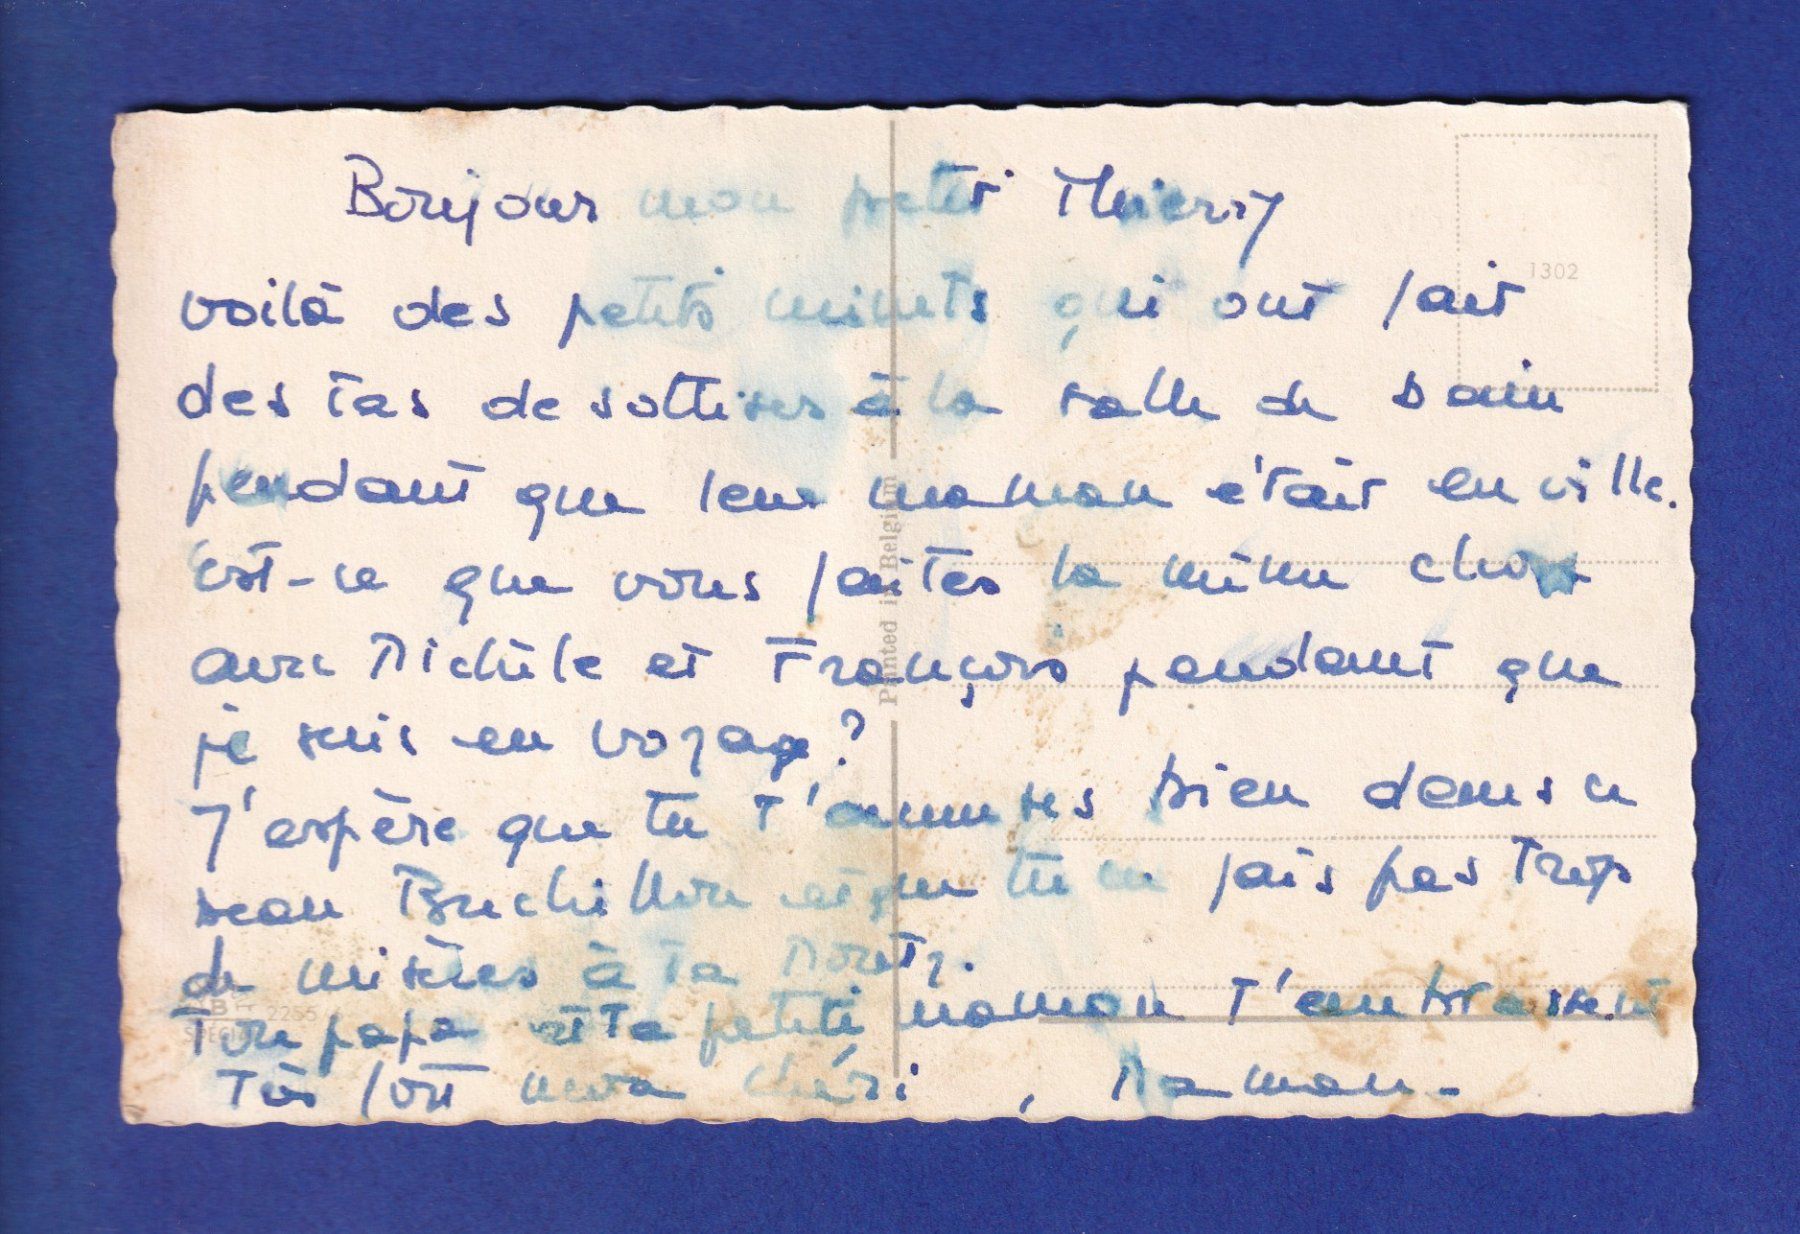 Bonjour mon petit Thierry
voilà des petits minets qui ont fait
des tas de sottises à la salle de bain
pendant que leur maman était en ville.
Est-ce que vous faites la même chose
avec Michèle et François pendant que
je suis en voyage?
J'espère que tu t'amuses bien dans ce
beau et que tu ne fais pas trop
de misères à ta
Ton papa et ta petite maman t'embrassent
très fort mon chéri, Maman.
Printed in Belgium
1302
2255